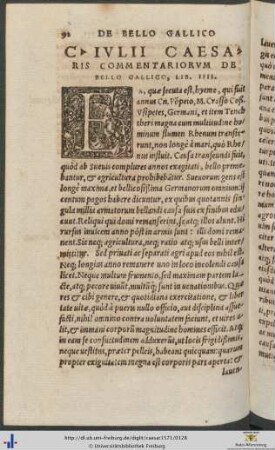 92 DE BELLO GALLICO
C. IVLII CAESA=
RIS COMMENTARIORVM DE
BELLO GALLICO, LIB. IIII.
EA, quæ secuta est, hyeme, qui fuit
annus Cn. Põpeio, M. Crasso Coss.
Vsipetes, Germani, et item Tench
theri magna cum multitudine ho
minum flumen Rhenum transie=
runt, non longe à mari, quò Rhe=
nus influit. Causa transeundi fuit,
quòd ab Sueuis complures annos exagitati, bello preme=
bantur, & agricultura prohibebãtur. Sueuorum gens est
longè maxima, et bellicosissima Germanorum omnium: ii
centum pagos habere dicuntur, ex quibus quotannis sin=
gula millia armatorum bellandi causa suis ex finibus edu
cunt. Reliqui qui domi remanserint, se, atq; illos alunt. Hi
rursus inuicem anno põst in armis sunt: illi domi remanent.
Sic neq; agricultura, neq; ratio atq; usus belli inter=
mittitur. Sed priuati ac separati agri apud eos nihil est.
Neq; longius anno remanere uno in loco incolendi causa
licet. Neque multum frumento, sed maximam partem la=
cte, atq; pecore uiuũt, multũq; sunt in uenationibus. Quæ
res et cibi genere, & quotidiana exercitatione, & liber
tate uitæ, quòd à pueris nullo officio, aut disciplina assue
facti, nihil omnino contra uoluntatem faciunt, et uires a=
lit, & immani corporũ magnitudine homines efficit. Atq;
in eam se consuetudinem adduxerũt, ut locis frigidissimis,
neque uestitus, præter pelleis, habeant quicquam: quarum
propter exiguitatem magna est corporis pars aperta: &
lauen=
http://dl.ub.uni-freiburg.de/diglit/caesar1571/0128
© Universitätsbibliothek Freiburg